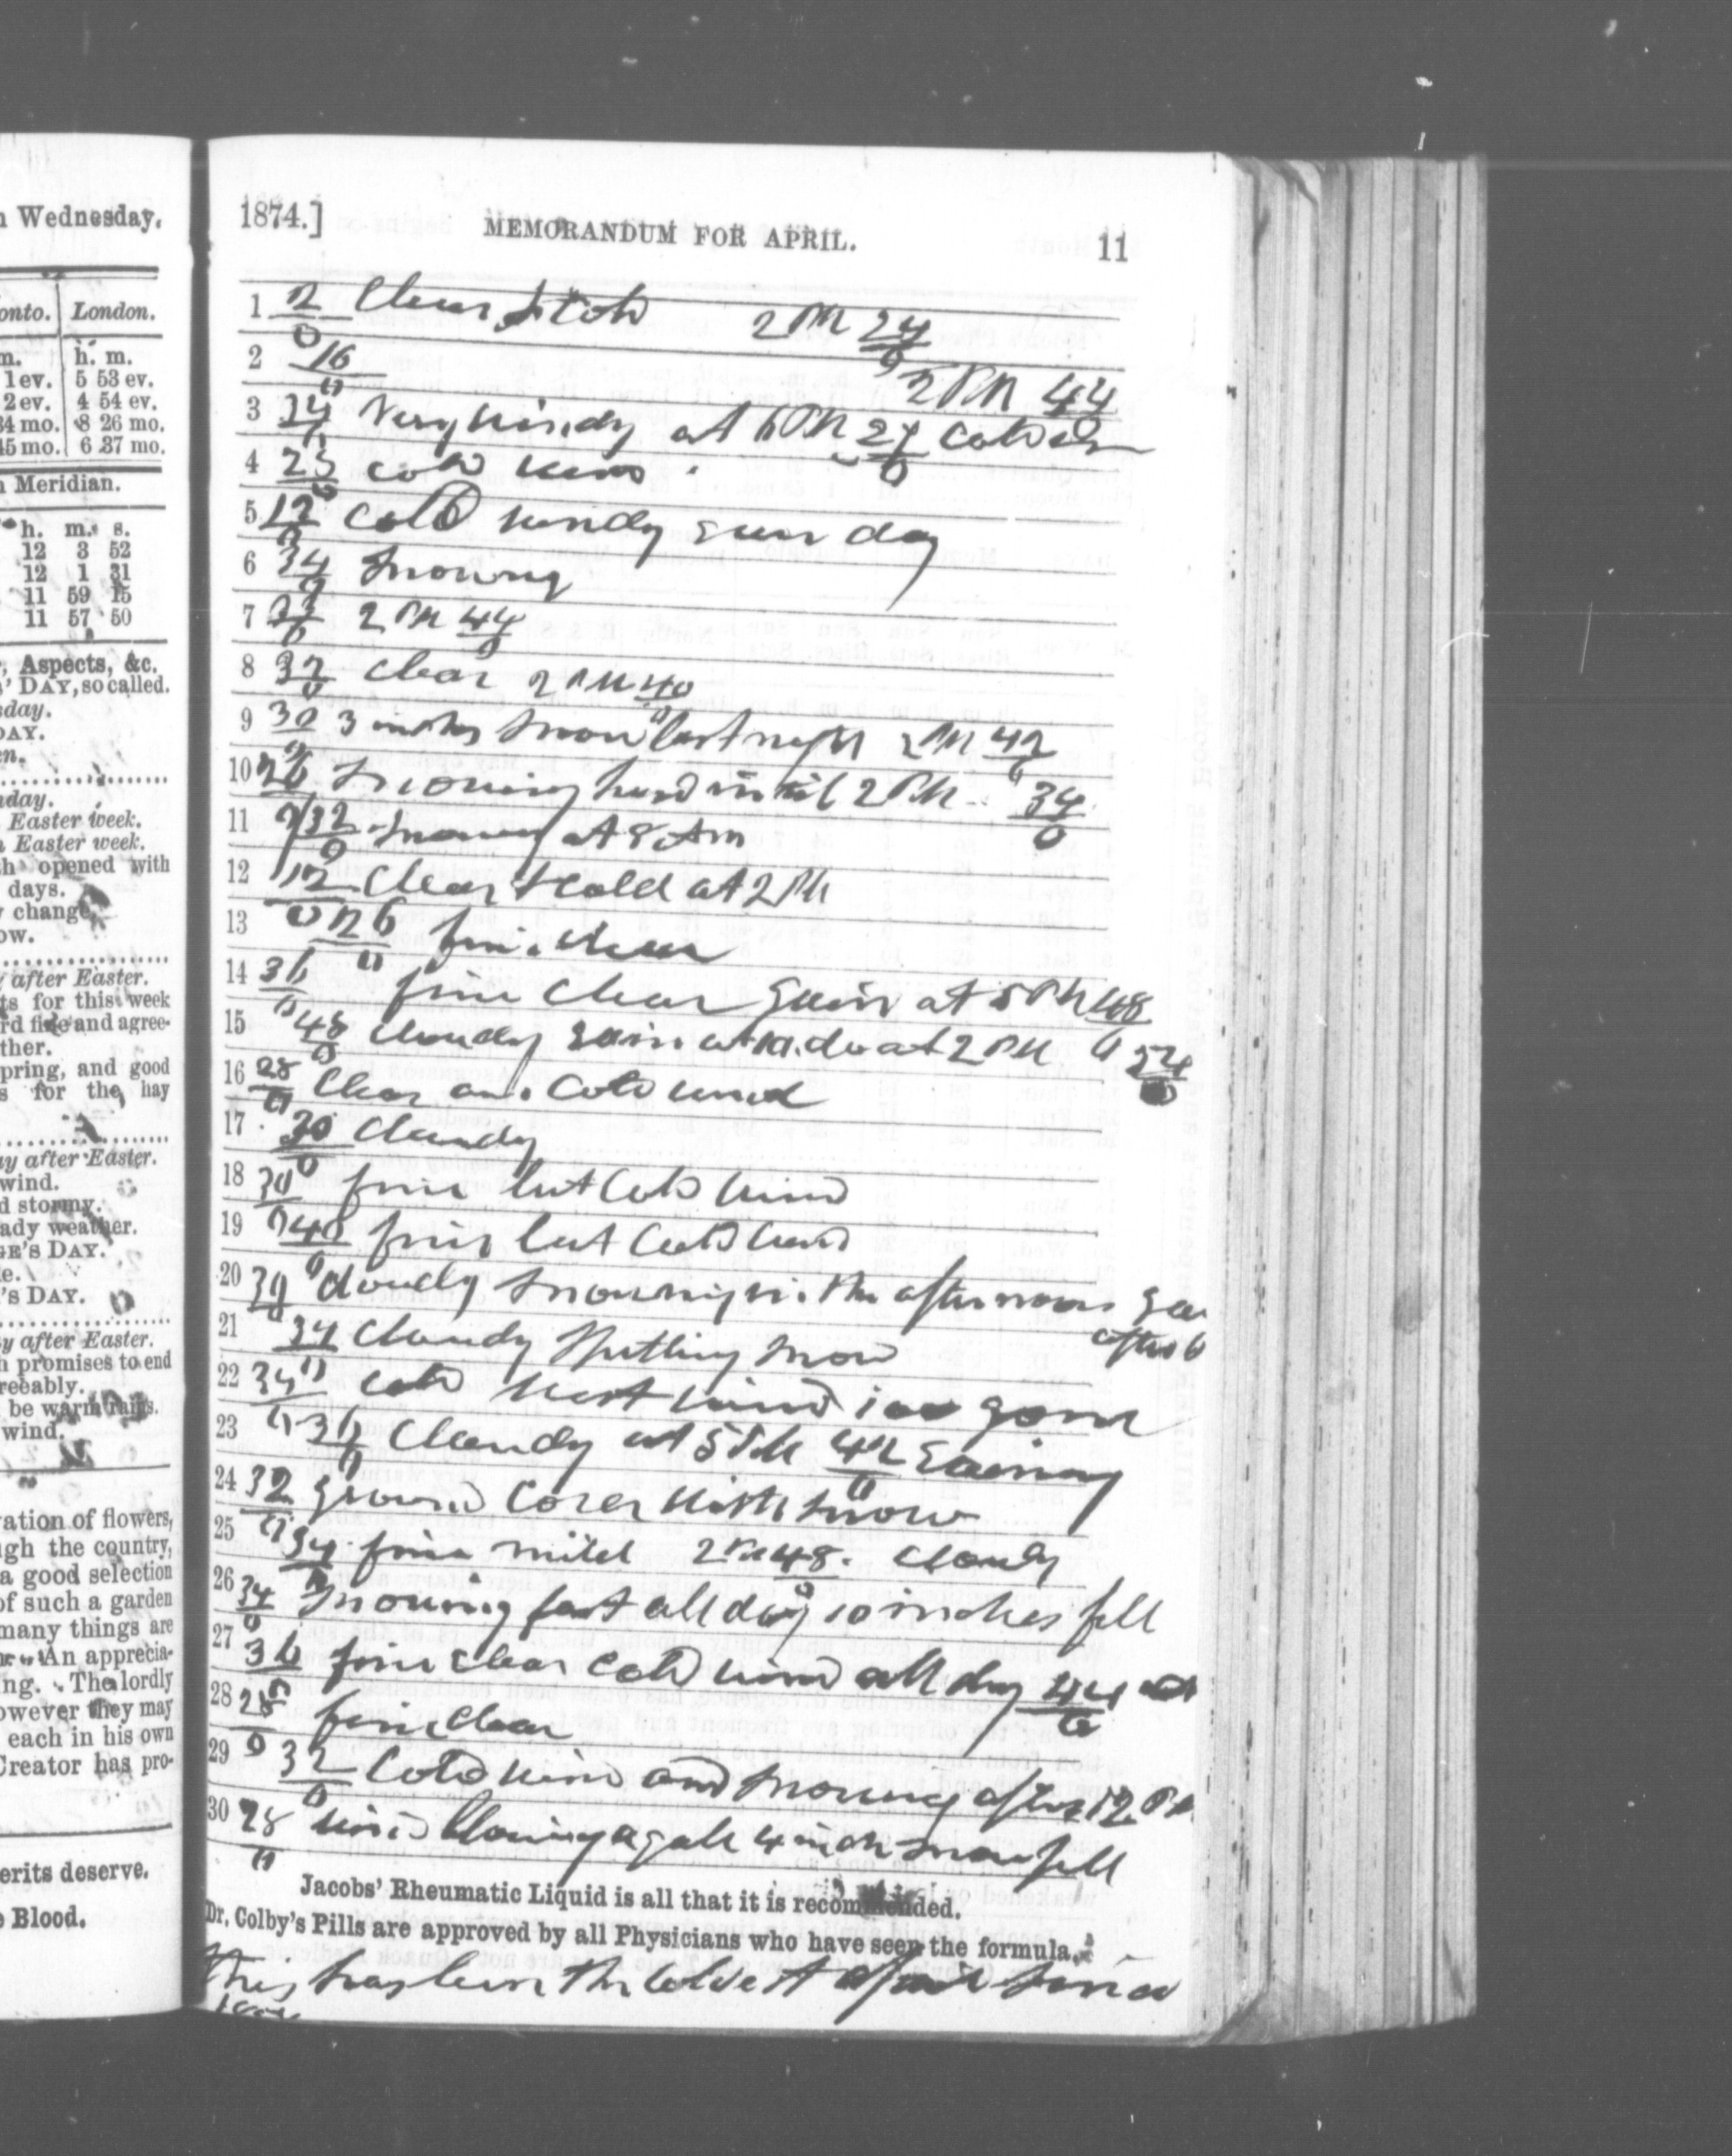 Wednesday.
onto. London.
m. h. m.
1 ev. 5 53 ev.
2 ev. 4 54 ev.
34 mo. 8 26 mo.
45 mo. 6 37 mo.
Meridian.
h. m. s.
12 3 52
12 1 31
11 59 15
11 57 50
Aspects, &c.
DAY, so called.
sday.
DAY.
nday.
Easter week.
Easter week.
opened with
days.
change
ow.
after Easter.
ts for this week
rd fine and agree-
ther.
pring, and good
s for the hay
ay after Easter.
wind.
d stormy.
ady weather.
GE'S DAY.
e.
'S DAY.
y after Easter.
h promises to end
reeably.
be warm rains.
wind.
vation of flowers,
ugh the country,
a good selection
of such a garden
many things are
An apprecia-
ng. The lordly
owever they may
each in his own
Creator has pro-
erits deserve.
Blood.
1874.] MEMORANDUM FOR APRIL. 11
1 12/0 Clear & Cold 2 PM 24/0
2 16/0 2 PM 44/0
3 34/0 Very Windy at 6 PM 27/0 Cold
4 25/0 cold wind
5 12/0 Cold windy day
6 34/0 Snowing
7 2 PM 44/0
8 32/0 Clear 2 PM 40/0
9 30/0 3 inches snow last night 2 PM 42/0
10 26/0 Snowing hard until 2 PM 34/0
11 32/0 Snowing at 8 Am
12 12/0 Clear & cold at 2 PM
13 26/0 fine clear
14 36/0 fine Clear at 5 PM 48/0
15 48/0 Cloudy at 2 PM 54/0
16 28/0 Clear and Cold wind
17 30/0 Cloudy
18 30/0 fine but Cold wind
19 40/0 fine but Cold wind
20 30/0 Cloudy Snowing in the afternoon
after 6
21 34/0 Cloudy Spitting snow
22 34/0 cold west wind ice gone
23 36/0 Cloudy at 5 PM 42/0 Raining
24 32/0 ground Cover with snow
25 34/0 fine mild 2 PM 48/0 Cloudy
26 34/0 Snowing fast all day 10 inches fell
27 36/0 fine clear cold wind all day 44/0
28 28/0 fine clear
29 32/0 Cold wind and snowing after 12 PM
30 28/0 Wind blowing a gale 4 inch snow fell
Jacobs' Rheumatic Liquid is all that it is recommended.
Dr. Colby's Pills are approved by all Physicians who have seen the formula.
This has been the coldest April since